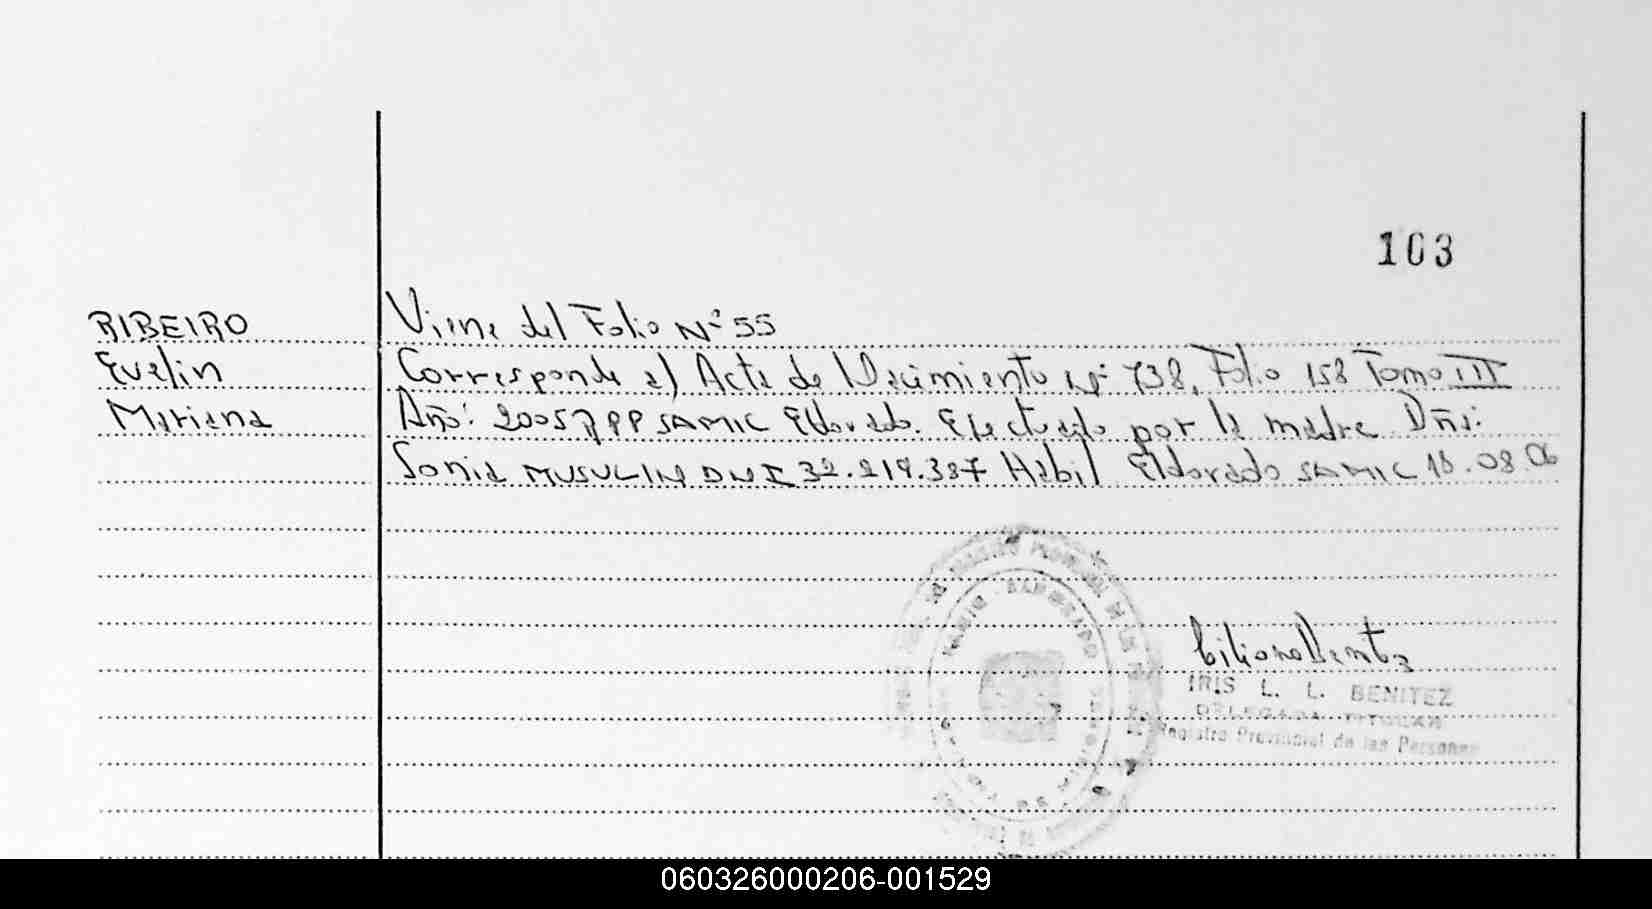 103
RIBEIRO Viene del Folio Nº 55
Evelin Corresponde al Acta de Nacimiento Nº 738, Folio 158 Tomo III
Mariana Año: 2005 PP SAMIC Eldorado. Efectuado por la madre Dña:
Sonia MUSULIN DNI 32.219.387 Habil Eldorado SAMIC 18.08.06
IRIS L. L. BENITEZ
DELEGADA TITULAR
Registro Provincial de las Personas
060326000206-001529